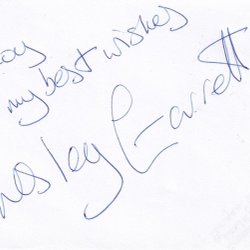 my best wishes
Lesley Garrett